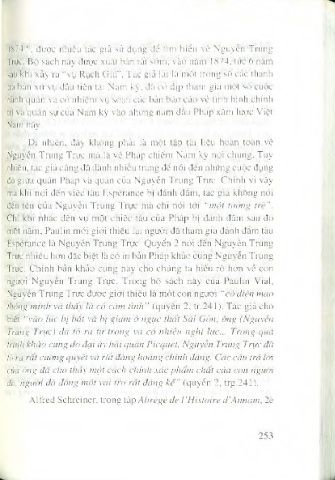 1874", được nhiều tác giả sử dụng để tìm hiểu về Nguyễn Trung
Trực. Bộ sách này được xuất bản rất sớm, vào năm 1874, tức 6 năm
sau khi xảy ra "vụ Rạch Giá". Tác giả lại là một trong số các thanh
tra bản xứ vụ đầu tiên tại Nam kỳ, đã có dịp tham gia một số cuộc
hành quân và có nhiệm vụ soạn các bản báo cáo về tình hình chính
trị và quân sự của Nam kỳ vào những năm đầu Pháp xâm lược Việt
Nam này.
Dĩ nhiên, đây không phải là một tập tài liệu hoàn toàn về
Nguyễn Trung Trực mà là về Pháp chiếm Nam kỳ nói chung. Tuy
nhiên, tác giả cũng đã dành nhiều trang để nói đến những cuộc đụng
độ giữa quân Pháp và quân của Nguyễn Trung Trực. Chính vì vậy
mà khi nói đến việc tàu Espérance bị đánh đắm, tác giả không nói
đến tên của Nguyễn Trung Trực mà chỉ nói tới "một tướng trẻ".
Chỉ khi nhắc đến vụ một chiếc tàu của Pháp bị đánh đắm sau đó
một năm, Paulin mới giới thiệu lại người đã tham gia đánh đắm tàu
Espérance là Nguyễn Trung Trực. Quyển 2 nói đến Nguyễn Trung
Trực nhiều hơn đặc biệt là có in bản Pháp khảo cung Nguyễn Trung
Trực. Chính bản khảo cung này cho chúng ta hiểu rõ hơn về con
người Nguyễn Trung Trực. Trong bộ sách này của Paulin Vial,
Nguyễn Trung Trực được giới thiệu là một con người "có diện mạo
thông minh và thấy là có cảm tình" (quyển 2, tr.241). Tác giả cho
biết "vào lúc bị bắt và bị giam ở ngục thất Sài Gòn, ông (Nguyễn
Trung Trực) đã tỏ ra tự trọng và có nhiều nghị lực... Trong quá
trình khảo cung do đại úy bát quân Picquet, Nguyễn Trung Trực đã
tỏ ra rất cương quyết và rất đàng hoàng chính đáng. Các câu trả lời
của ông đã cho thấy một cách chính xác phẩm chất của con người
đó, người đã đóng một vai trò rất đáng kể" (quyển 2, trg.241).
Alfred Schreiner, trong tập Abrégé de l'Histoire d'Annam, 2e
253